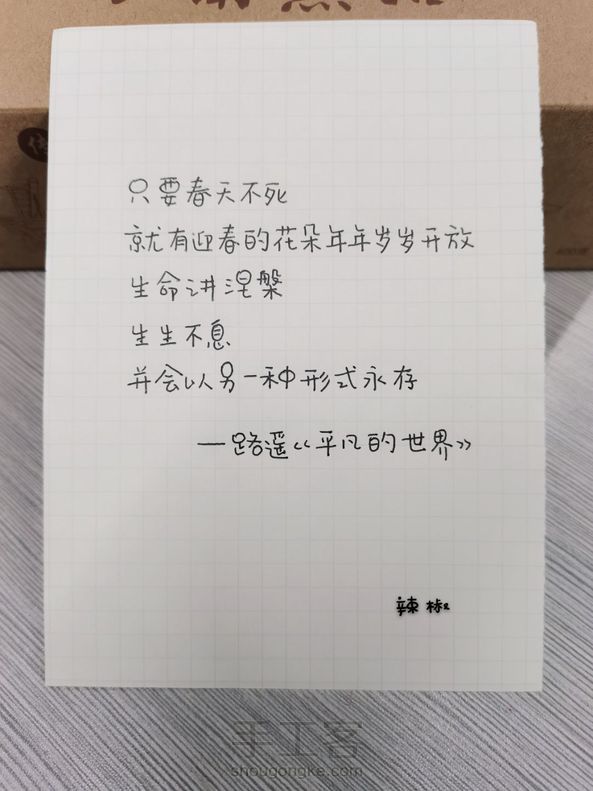 只要春天不死
就有迎春的花朵年年岁岁开放
生命讲涅槃
生生不息
并会以另一种形式永存
—路遥《平凡的世界》
辣椒
手工客
shougongke.com